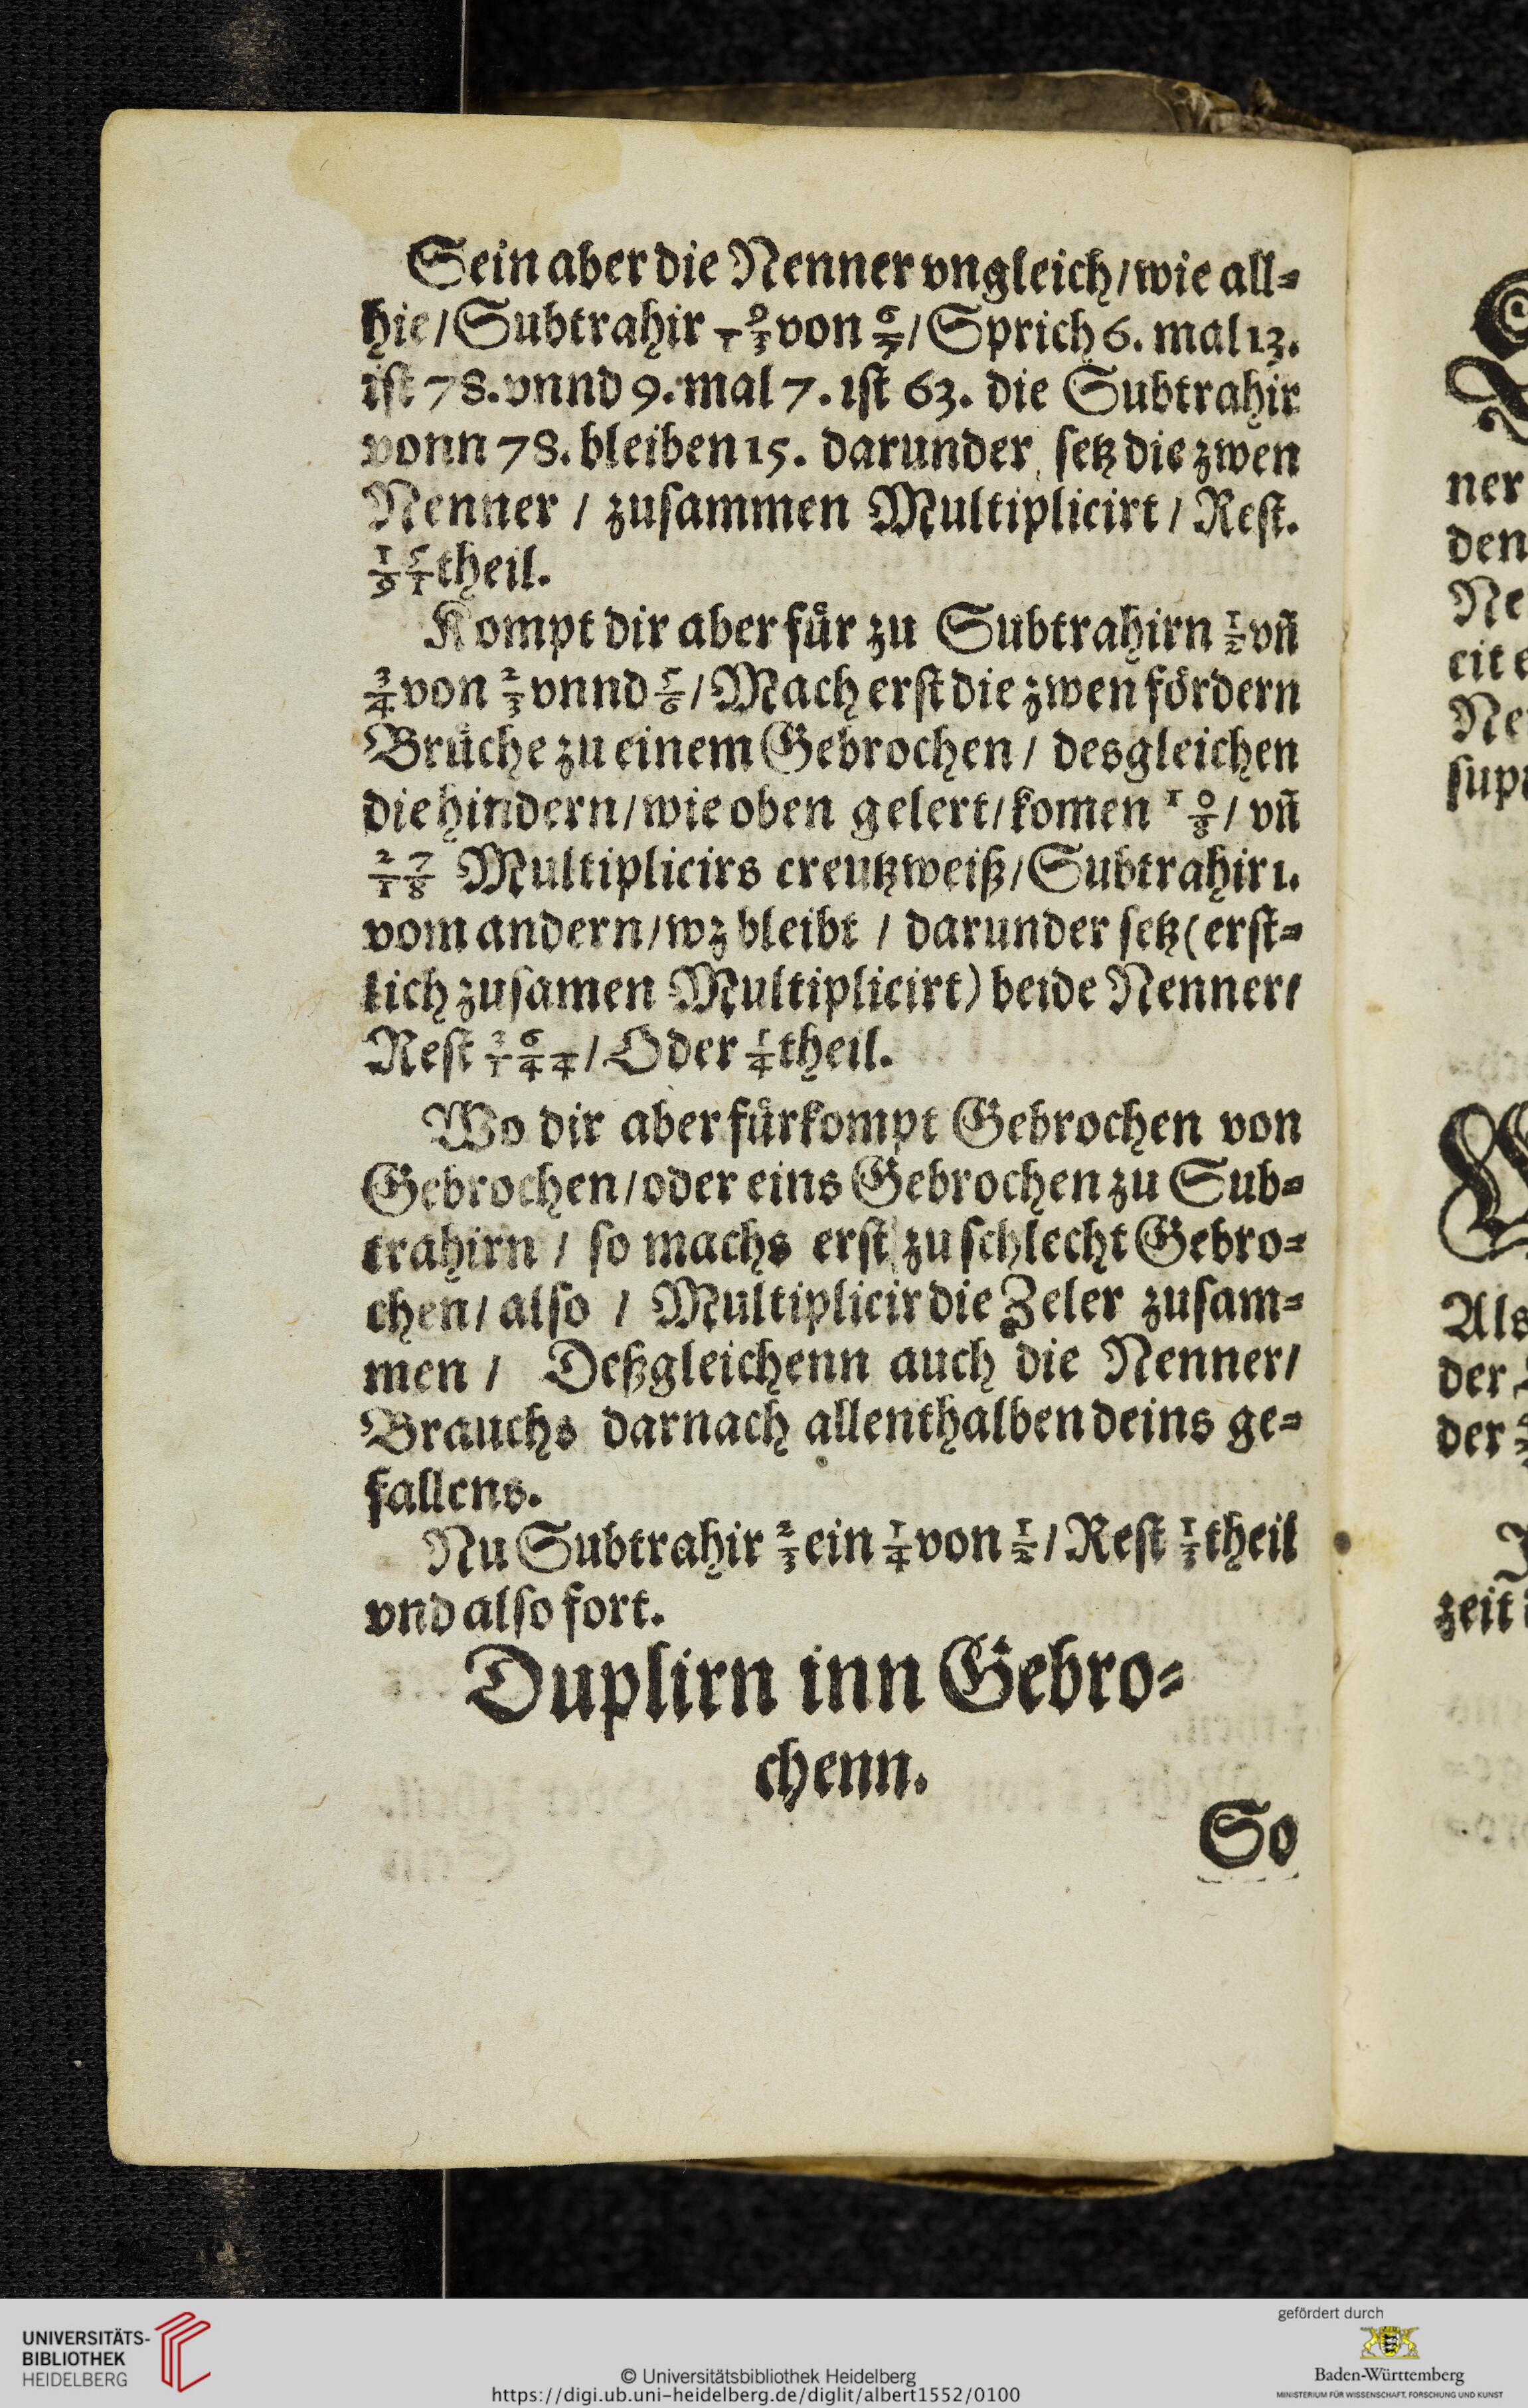 Sein aber die Nenner vngleich/ wie all⸗
hie/ Subtrahir 9/13 von 6/7/ Sprich 6. mal 13.
ist 78. vnnd 9. mal 7. ist 63. die Subtrahir
vonn 78. bleiben 15. darunder setz die zwen
Nenner / zusammen Multiplicirt / Rest.
15/91 theil.
Kompt dir aber fuͤr zu Subtrahirn 1/2 vñ
3/4 von 2/3 vnnd 5/6/ Mach erst die zwen foͤrdern
Bruͤche zu einem Gebrochen / desgleichen
die hindern/ wie oben gelert/ komen 10/8/ vñ
27/18 Multiplicirs creutzweiß/ Subtrahir 1.
vom andern/ wz bleibt / darunder setz (erst⸗
lich zusamen Multiplicirt) beide Nenner/
Rest 36/144/ Oder 1/4 theil.
Wo dir aber fuͤrkompt Gebrochen von
Gebrochen/ oder eins Gebrochen zu Sub⸗
trahirn / so machs erst zu schlecht Gebro⸗
chen/ also / Multiplicir die Zeler zusam⸗
men / Deßgleichenn auch die Nenner/
Brauchs darnach allenthalben deins ge⸗
fallens.
Nu Subtrahir 2/3 ein 1/4 von 1/2/ Rest 1/3 theil
vnd also fort.
Duplirn inn Gebro⸗
chenn.
So
ner
den
Ne
cit e
Ne
sup
Als
der
der
zeit
UNIVERSITÄTS-
BIBLIOTHEK
HEIDELBERG
© Universitätsbibliothek Heidelberg
https://digi.ub.uni-heidelberg.de/diglit/albert1552/0100
gefördert durch
Baden-Württemberg
MINISTERIUM FÜR WISSENSCHAFT, FORSCHUNG UND KUNST